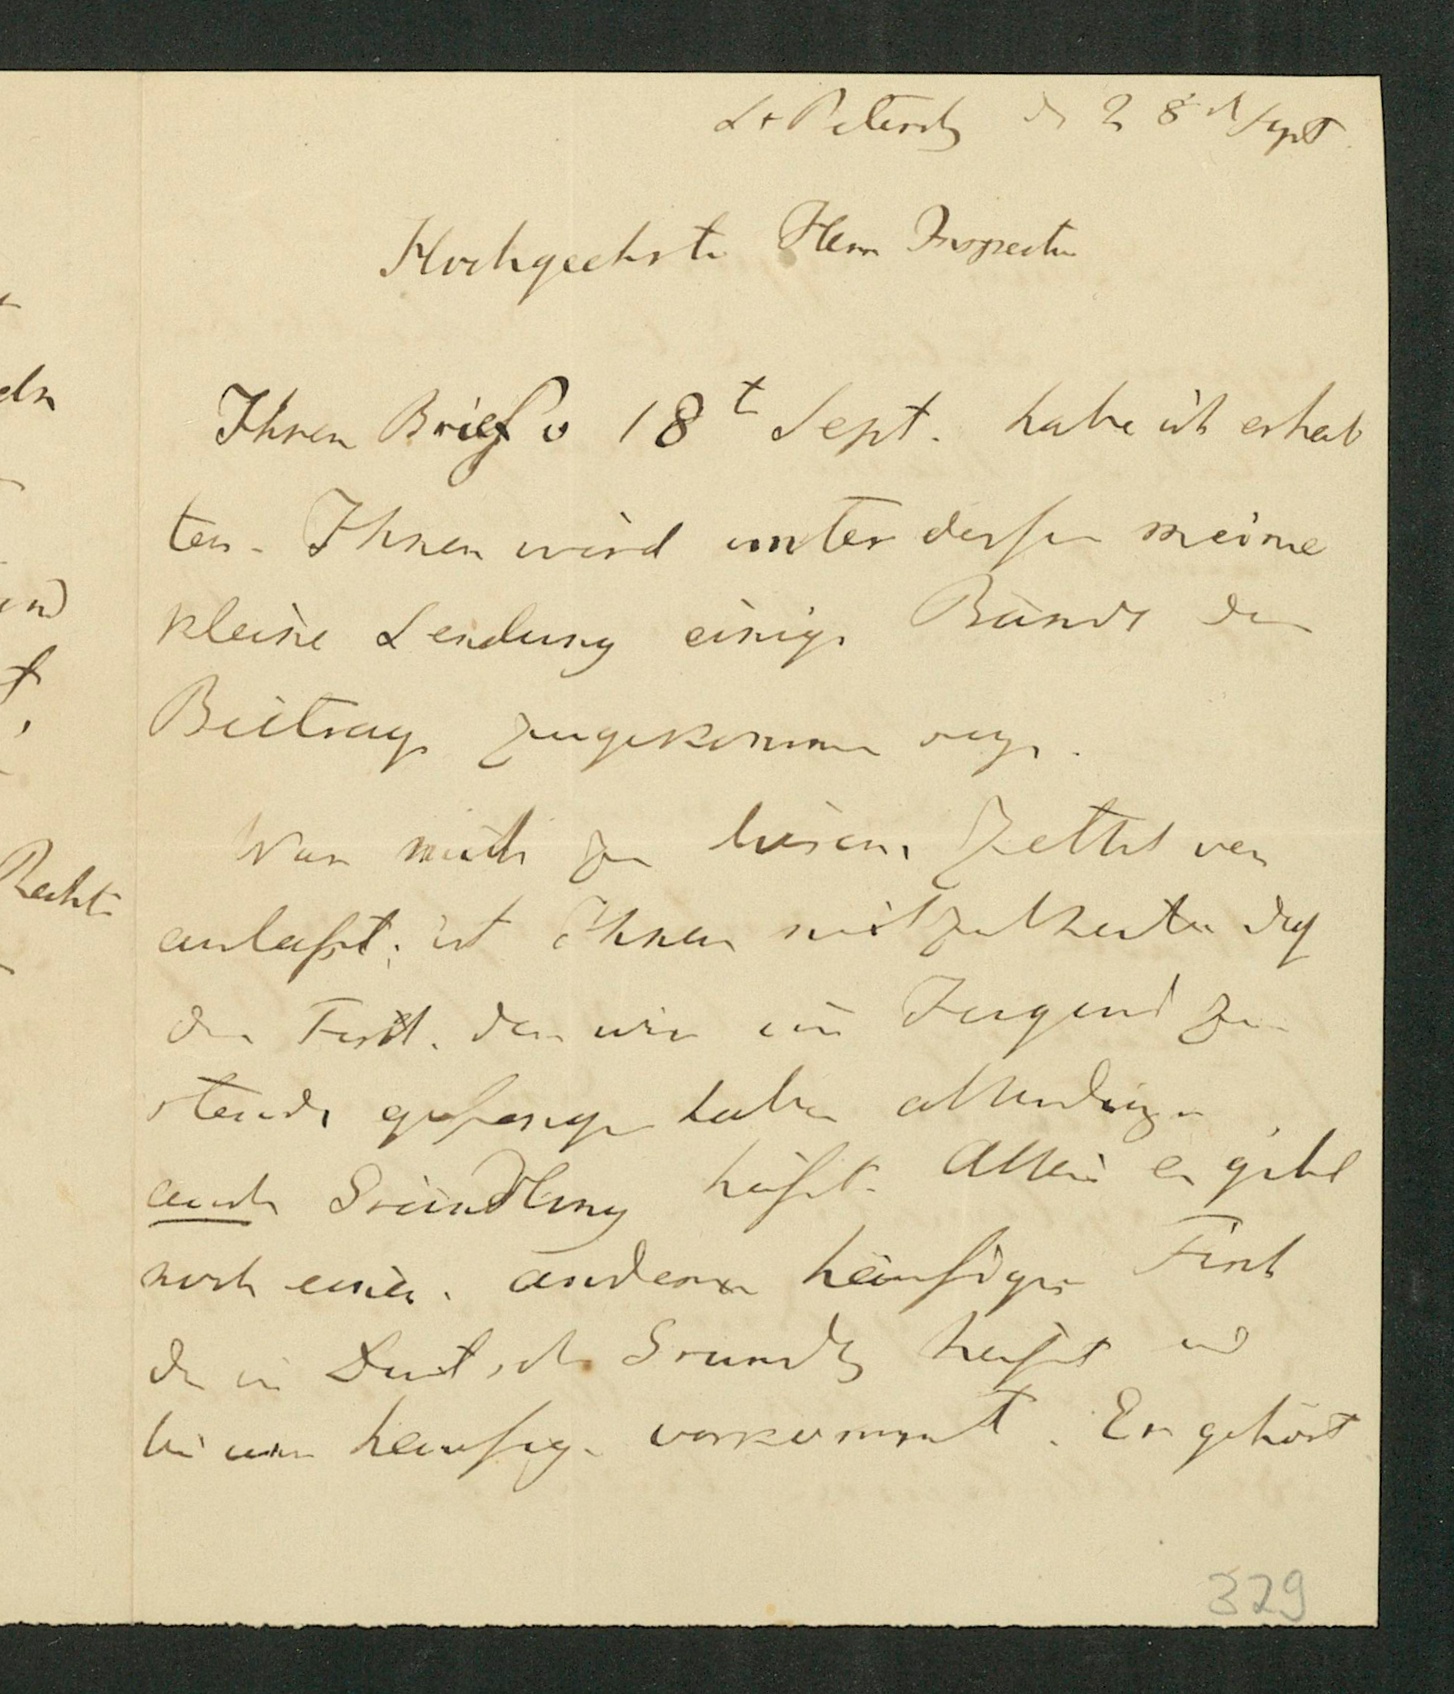 St Petersb d 28t Sept.
Hochgeehrter Herr Inspector
Ihren Brief v 18t Sept. habe ich erhal
ten. Ihnen wird unterdessen meine
kleine Sendung einige Bände der
Beitrage zugekommen seyn.
Was mich zu diesem Zettel ver
anlasst, ist Ihnen mitzutheilen daß
der Fisch den wir im Jugend zu
stande gefangen haben allerdings
auch Gründling heißt. Allein es gibt
noch einen anderen häufigen Fisch
der in Deutsch Grundlg heißt und
bei uns haufig vorkommt. Er gehört
329
edn
und
Rechte